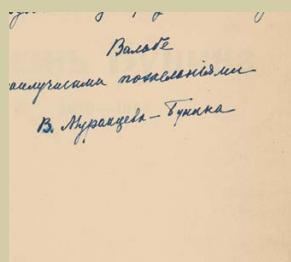 Вальбе
наилучшими пожеланіями
В. Муромцева-Бунина